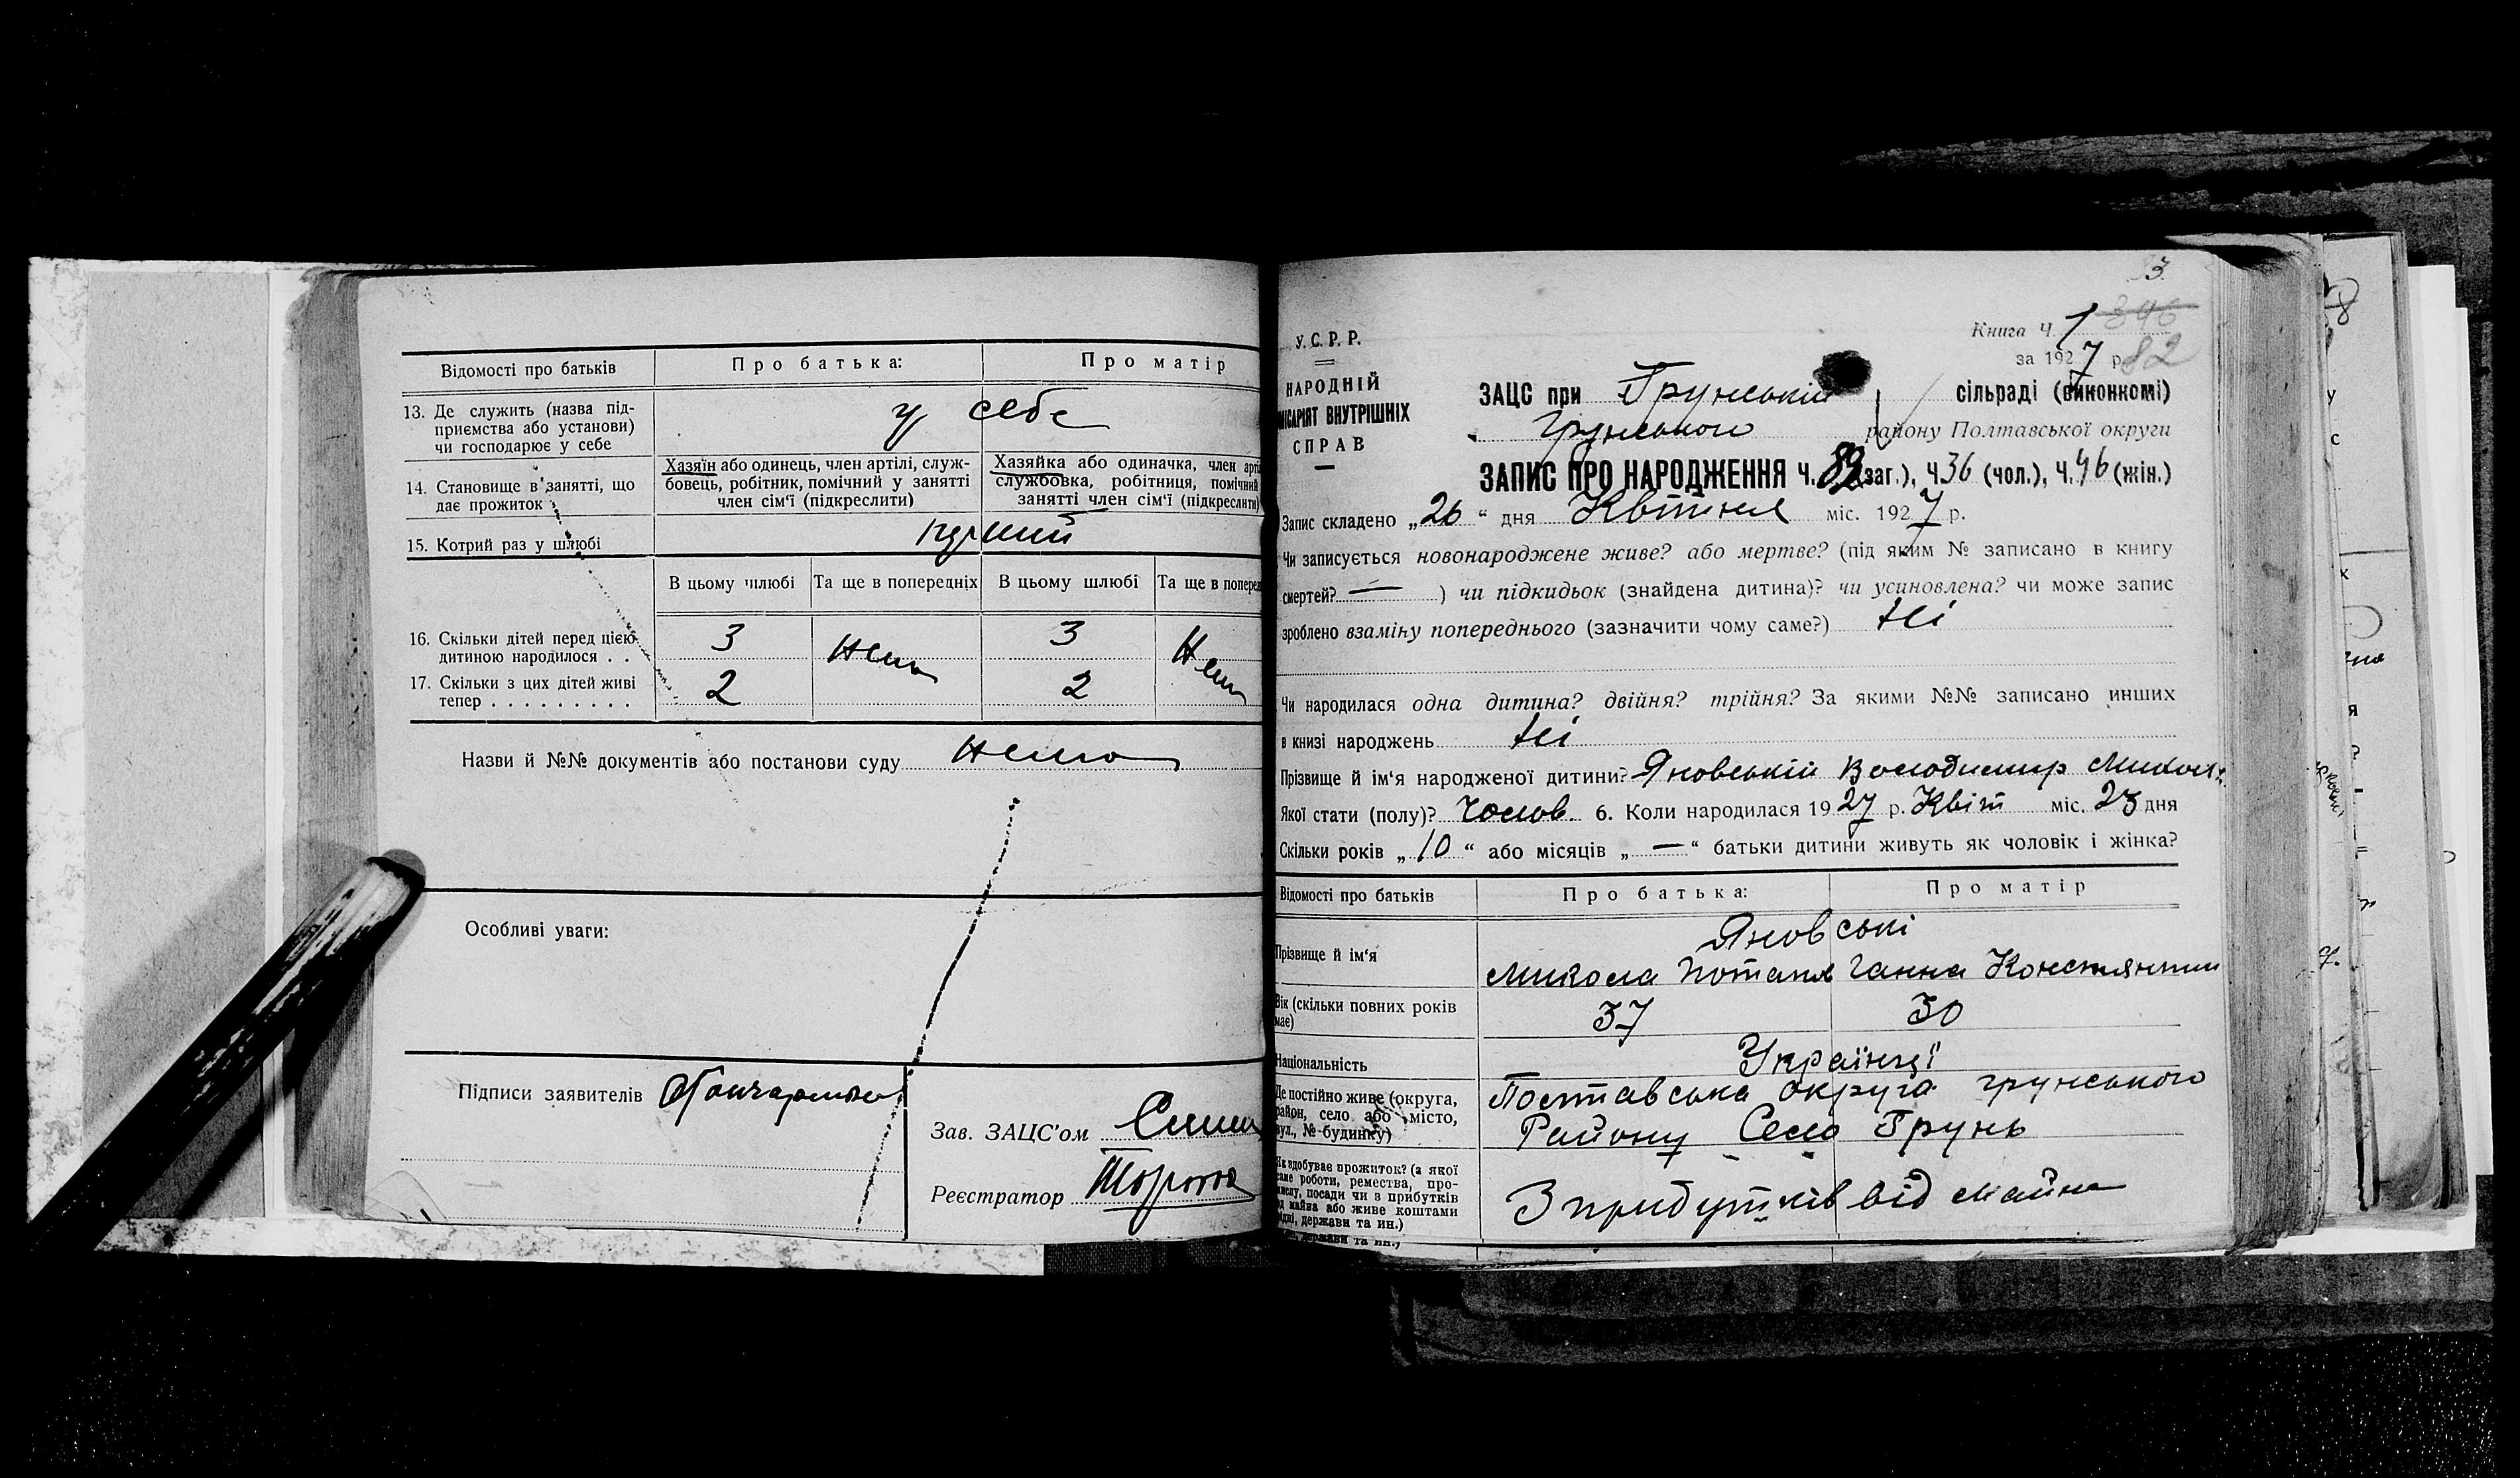 Відомості про батьків
Про батька:
Про матір
13. Де служить (назва під-
приємства або установи)
чи господарює у себе
у себе
14. Становище в занятті, що
дає прожиток
Хазяїн або одинець, член артілі, служ-
бовець, робітник, помічний у занятті
член сім'ї (підкреслити)
Хазяйка або одиначка, член арті
службовка, робітниця, помічний
занятті член сім'ї (підкреслити)
15. Котрий раз у шлюбі
перший
В цьому шлюбі
Та ще в попередніх
В цьому шлюбі
Та ще в попере
16. Скільки дітей перед цією
дитиною народилося . .
3
Нема
3
Нема
17. Скільки з цих дітей живі
тепер . . . . . . . . .
2
2
Назви й №№ документів або постанови суду Нема
Особливі уваги:
Підписи заявителів
Зав. ЗАЦС'ом
Реєстратор
3.
У.С.Р.Р.
НАРОДНІЙ
ІСАРІЯТ ВНУТРІШНІХ
СПРАВ
Книга Ч. 1 346
за 1927 р. 82
ЗАЦС при Грунській сільраді (виконкомі)
Грунського району Полтавської округи
ЗАПИС ПРО НАРОДЖЕННЯ Ч. 82 (заг.), Ч. 36 (чол.), Ч. 46 (жін.)
Запис складено „26“ дня Квітня міс. 1927 р.
Чи записується новонароджене живе? або мертве? (під яким № записано в книгу
смертей? — ) чи підкидьок (знайдена дитина)? чи усиновлена? чи може запис
зроблено взаміну попереднього (зазначити чому саме?) Ні
Чи народилася одна дитина? двійня? трійня? За якими №№ записано инших
в книзі народжень Ні
Прізвище й ім'я народженої дитини? Яновській Володимир Микол.
Якої стати (полу)? Чолов. 6. Коли народилася 1927 р. Квіт міс. 23 дня
Скільки років „10“ або місяців „—“ батьки дитини живуть як чоловік і жінка?
Відомості про батьків
Про батька:
Про матір
Прізвище й ім'я
Яновські
Микола Потапів Ганна Констянтин
Вік (скільки повних років
має)
37
30
Національність
Українці
Де постійно живе (округа,
район, село або місто,
вул., № будинку)
Полтавська округа грунського
Району Село Грунь
Як здобуває прожиток? (з якої
саме роботи, ремества, про-
мислу, посади чи з прибутків
од майна або живе коштами
рідні, держави та ин.)
З прибутків від майна
держави та ин.)